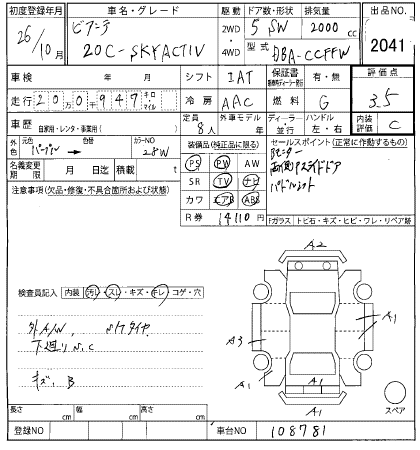 初度登録年月 車名・グレード 駆動 ドア数・形状 排気量 出品NO.
26年 10月 ビアンテ 20C-SKYACTIV 2WD・4WD 5 SW 2000cc 2041
型式 DBA-CCFFW
車検 年 月 シフト IAT 保証書 有・無 評価点
走行 20万0千947 キロ マイル 冷房 AAC 燃料 G 3.5
車歴 自家用・レンタ・事業用( ) 定員 8人 外車モデル 年 ディーラー 並行 ハンドル 左・右 内装評価 C
外色 元色 パープル カラーNO 28W
装備品(純正品に限る)
セールスポイント(正常に作動するもの)
名義変更期限 月 日迄 積載 t
PS PW AW
SR TV ナビ
カワ エアB ABS
R券 14110円
両側パワスライドドア
注意事項(欠品・修復・不具合箇所および状態)
Fガラス トビ石・キズ・ヒビ・ワレ・リペア跡
検査員記入 内装 汚レ・スレ・キズ・キレ・コゲ・穴
外A/W
下廻りS.C
キズ B
A2
A3
A1
A1
A1
A1
スペア
長さ cm 幅 cm 高さ cm
登録NO 車台NO 108781